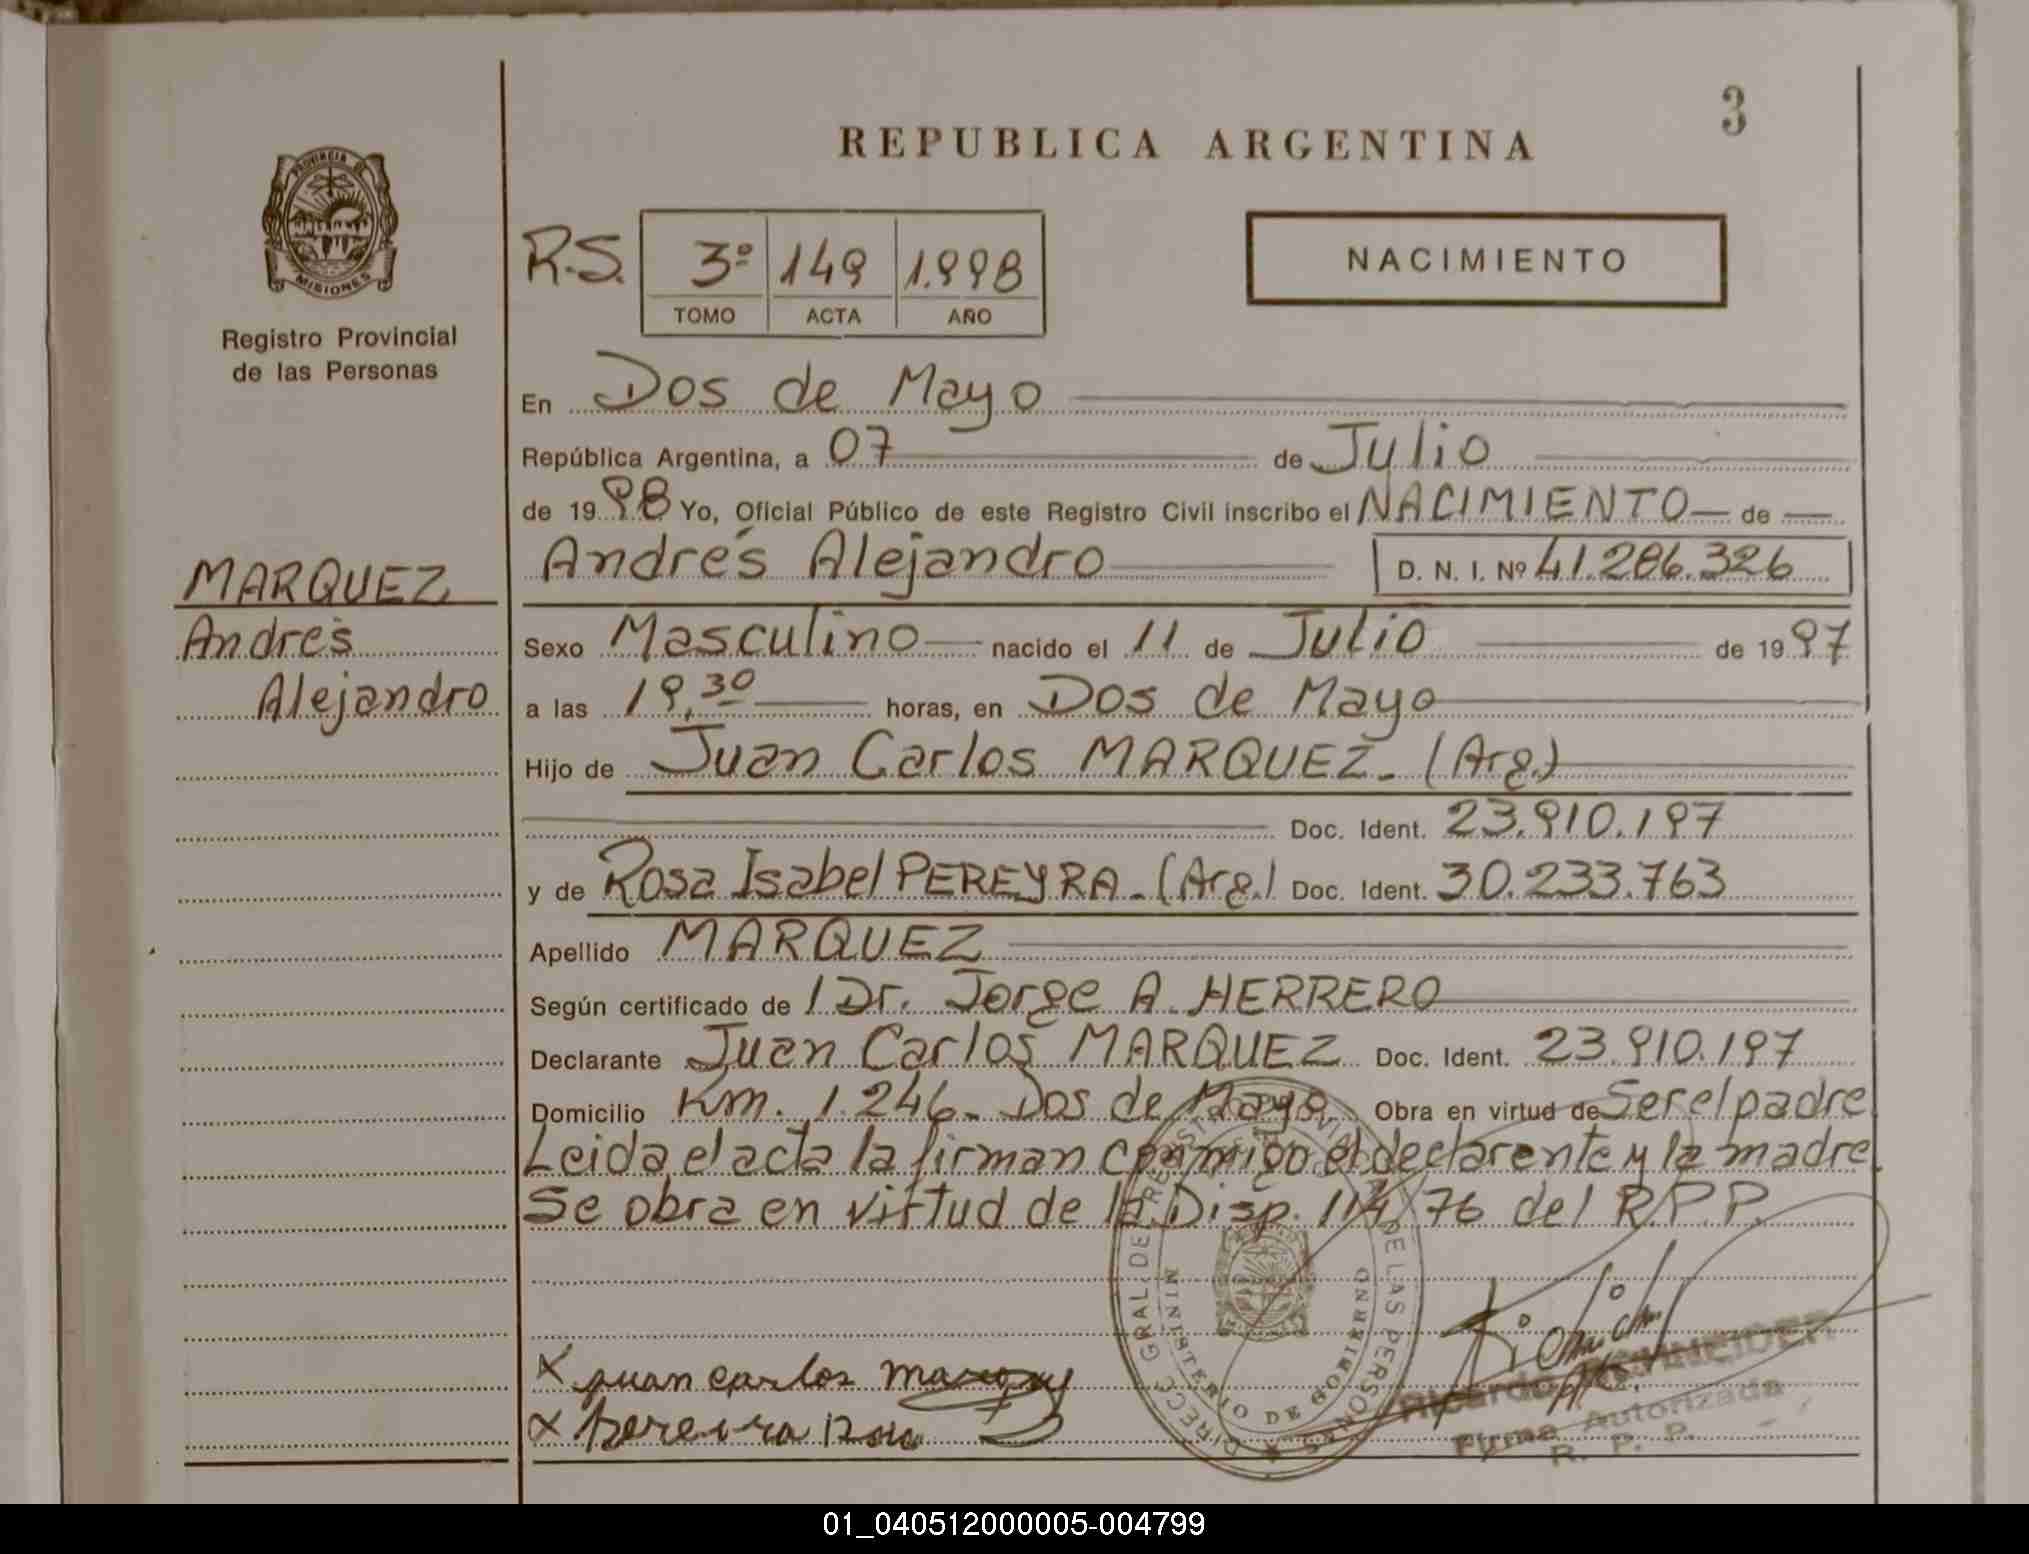 3
REPUBLICA ARGENTINA
PROVINCIA DE
MISIONES
Registro Provincial
de las Personas
R.S. 3º 149 1.998
TOMO ACTA AÑO
NACIMIENTO
En Dos de Mayo
República Argentina, a 07 de Julio
de 1998 Yo, Oficial Público de este Registro Civil inscribo el NACIMIENTO de
MARQUEZ
Andrés
Alejandro
Andrés Alejandro D. N. I. Nº 41.286.326
Sexo Masculino nacido el 11 de Julio de 1997
a las 19,30 horas, en Dos de Mayo
Hijo de Juan Carlos MARQUEZ - (Arg.)
Doc. Ident. 23.910.197
y de Rosa Isabel PEREYRA - (Arg.) Doc. Ident. 30.233.763
Apellido MARQUEZ
Según certificado de / Dr. Jorge A. HERRERO
Declarante Juan Carlos MARQUEZ Doc. Ident. 23.910.197
Domicilio Km. 1.246 - Dos de Mayo Obra en virtud de Ser el padre
Leida el acta la firman conmigo el declarente y la madre.
Se obra en virtud de la Disp. 114/76 del R.P.P.
x juan carlos marquez
x Pereira Rosa
DIRECC. GRAL. DE REGISTRO PROVINCIAL DE LAS PERSONAS
MINISTERIO DE GOBIERNO
Ricardo SCHNEIDER
Firma Autorizada
R. P. P.
01_040512000005-004799